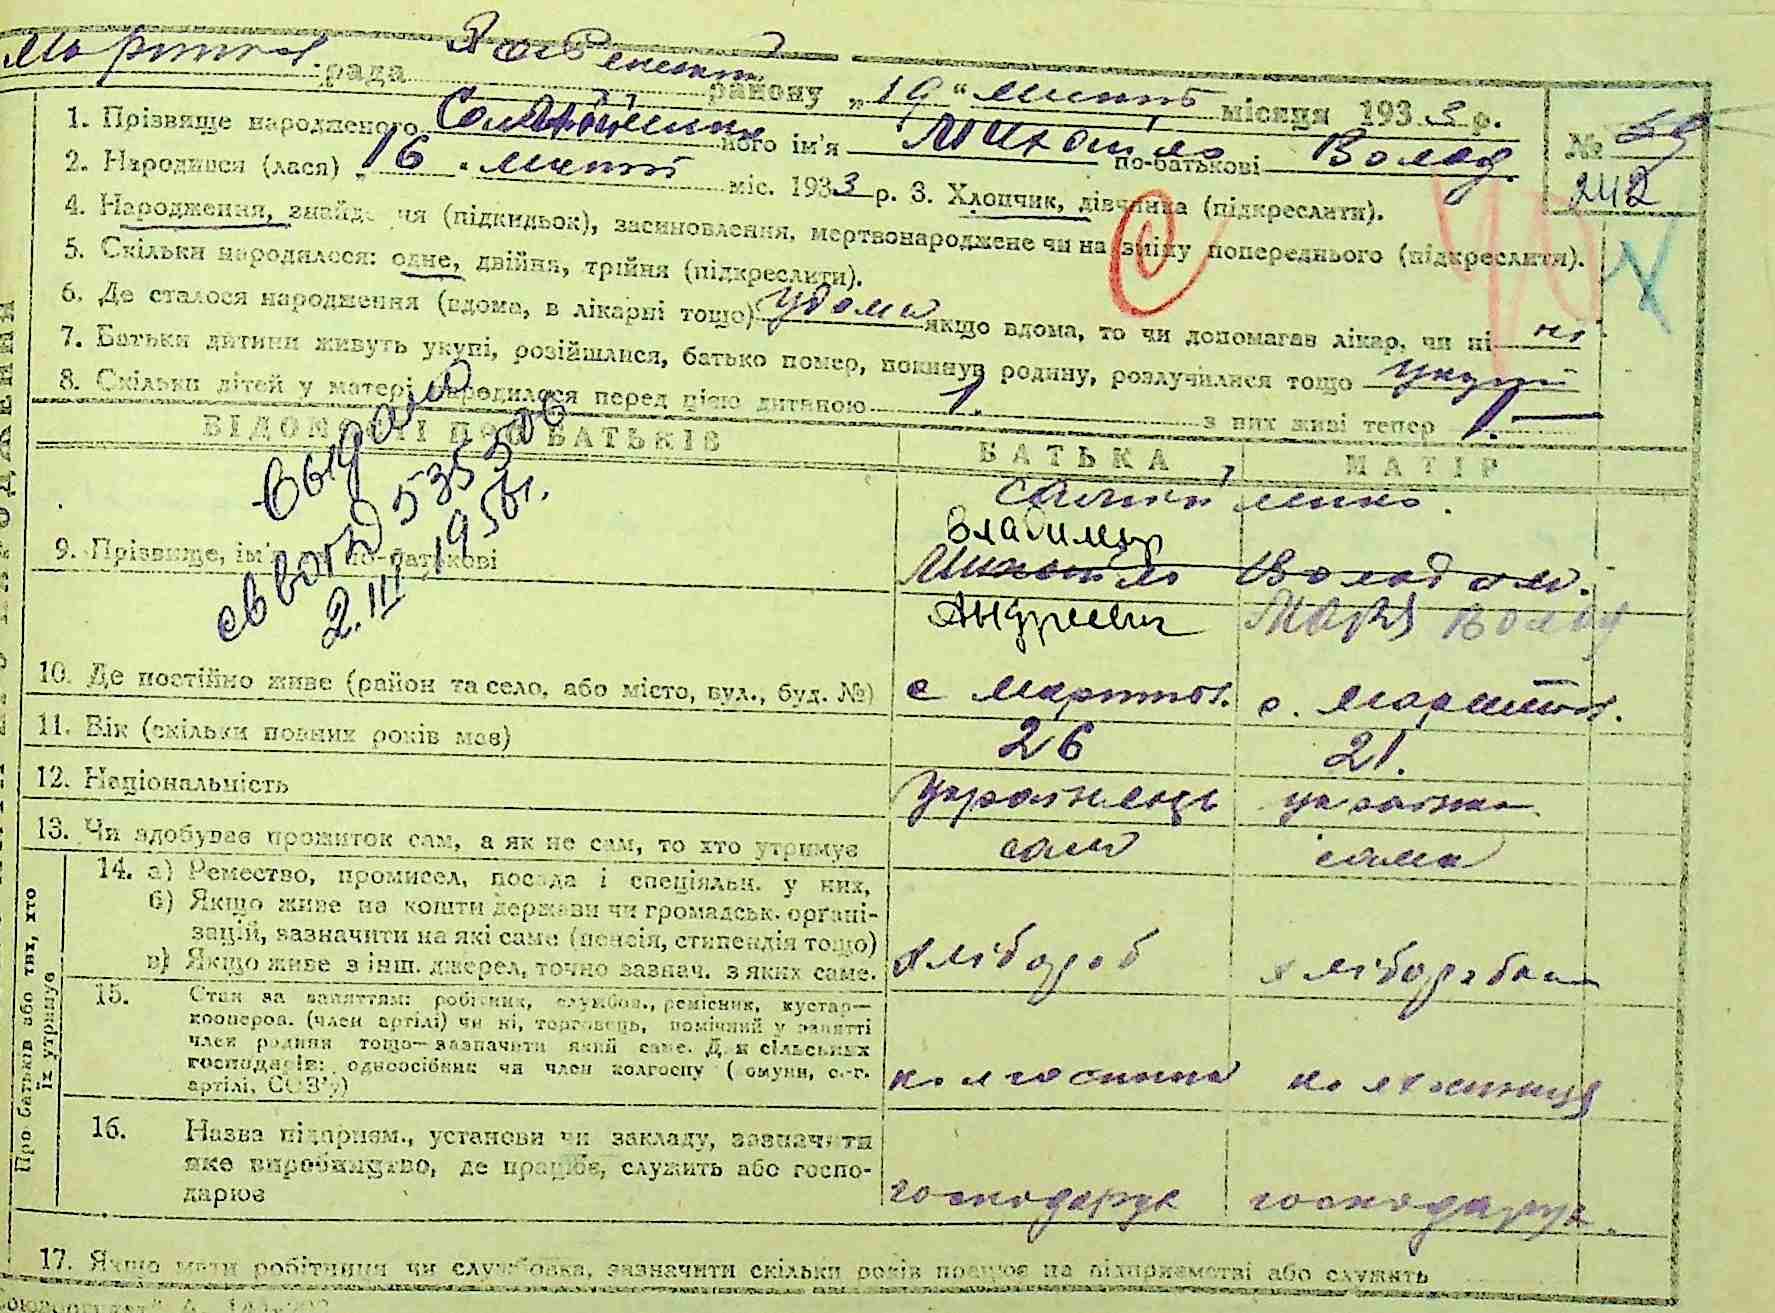 рада району „19“ місяця 1933 р.
1. Прізвище народженого його ім'я Михайло по-батькові Волод.
№ 242
2. Народився (лася) „16 міс. 1933 р. 3. Хлопчик, дівчинка (підкреслити).
4. Народження, знайдення (підкидьок), засиновлення, мертвонароджене чи на зміну попереднього (підкреслити).
5. Скільки народилося: одне, двійня, трійня (підкреслити).
6. Де сталося народження (вдома, в лікарні тощо) удома якщо вдома, то чи допомагав лікар, чи ні ні
7. Батьки дитини живуть укупі, розійшлися, батько помер, покинув родину, розлучилися тощо укупі
8. Скільки дітей у матері народилося перед цією дитиною 1. з них живі тепер 1.
ВІДОМОСТІ ПРО БАТЬКІВ БАТЬКА МАТІР
Выдано
свво 535506
2.III.1956г.
Владимир
9. Прізвище, ім'я по-батькові Михайло Волод
Андреевич Марія Волод
10. Де постійно живе (район та село, або місто, вул., буд. №) с Мартов. с. Мартов.
11. Вік (скільки повних років має) 26 21.
12. Національність Українець українка
13. Чи здобуває прожиток сам, а як не сам, то хто утримує сам сама
Про батьків або тих, хто їх утримує
14. а) Ремество, промисел, посада і спеціяльн. у них,
б) Якщо живе на кошти держави чи громадськ. органі-
зацій, зазначити на які саме (пенсія, стипендія тощо)
в) Якщо живе з інш. джерел, точно зазнач. з яких саме.
хлібороб хліборобка
15. Стан за заняттям: робітник, службов., ремісник, кустар—
коопероа. (член артілі) чи ні, торговець, помічний у занятті
член родини тощо—зазначити який саме. Для сільських
господарів: одноосібник чи член колгоспу (комуни, с.-г.
артілі, СОЗ'у)
колгоспник
16. Назва підприєм., установи чи закладу, зазначити
яке виробництво, де працює, служить або госпо-
дарює
господарує господарує.
17. Якщо мати робітниця чи службовка, зазначити скільки років працює на підприємстві або служить